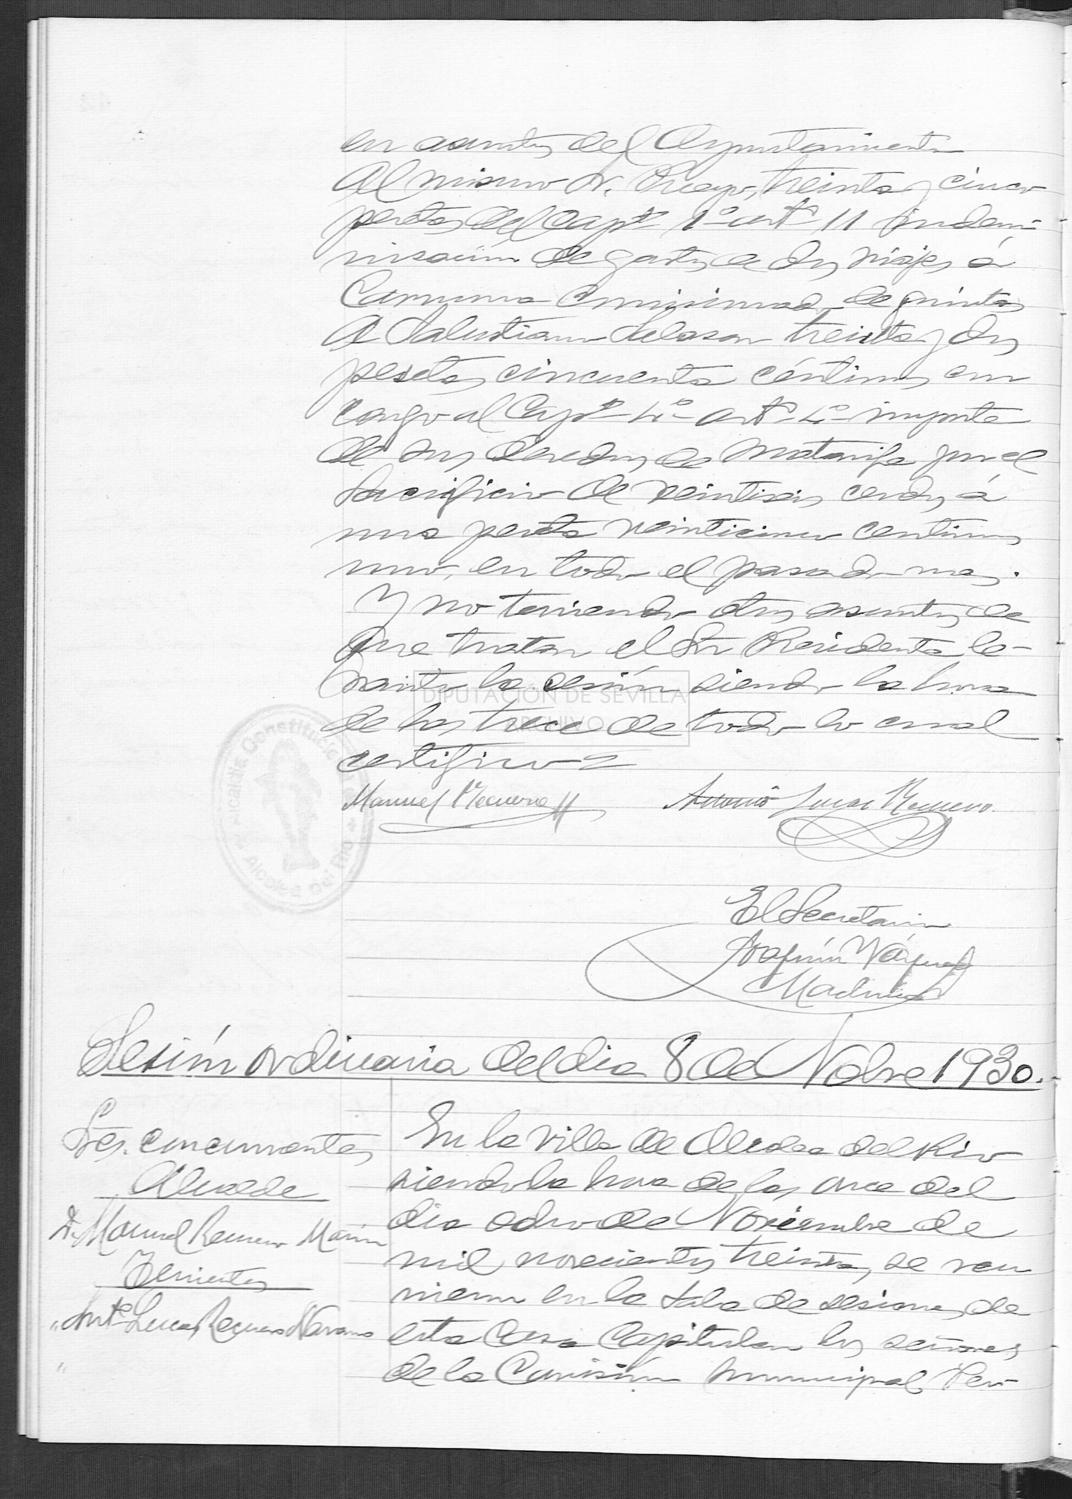 en asuntos del Ayuntamiento
Al mismo Sr. treinta y cinco
pesetas del Capto 1º artº 11 indem-
nisación de gastos de dos viajes á
Carmona comisionado de quintas
A Salustiano treinta y dos
pesetas cincuenta céntimos con
cargo al Capº 4º artº 4º importe
de sus derechos de matarife por el
sacrificio de veintiseis cerdos á
una peseta veinticinco centimos
uno, en todo el pasado mes.
Y no teniendo otros asuntos de
que tratar el Sr Presidente le-
vantó la sesión siendo la hora
de las trece de todo lo cual
certifico=
DIPUTACIÓN DE SEVILLA
ARCHIVO
Alcaldia Constitucional
Alcolea del Rio
Manuel Requena
Antonio Lucas Requena
El Secretario
Joaquín Vázquez
Sesión ordinaria del dia 8 de Nobre 1930.
Sres. concurrentes
Alcalde
D. Manuel Requena Marin
Tenientes
" Antº Lucas Requena Navarro
"
En la villa de Alcolea del Rio
siendo la hora de las once del
dia ocho de Noviembre de
mil novecientos treinta, se reu
nieron en la Sala de sesiones de
esta Casa Capitular los señores
de la Comisión municipal Per-